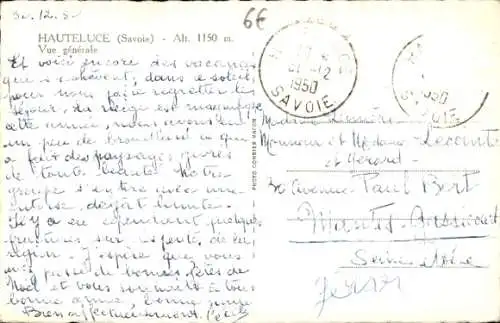 30.12.5
6€
HAUTELUCE (Savoie) - Alt. 1150 m.
Vue générale
Et voici encore des vacances
qui s'achèvent, dans le soleil,
pour nous faire regretter le
séjour. La neige est magnifique
cette année, nous avons eu
un peu de brouillard ce qui
a fait des paysages givrés
de toute beauté. Notre
groupe s'entre avec une
Il y a eu cependant quelques
fractures sur les pentes de la
région. J'espère que vous
avez passé de bonnes fêtes de
Noël et vous souhaite à tous
bonne année, bonne
Bien affectueusement. Cécile
31-12
1950
SAVOIE
1950
SAVOIE
PHOTO-COURRIER
Madame
Monsieur et Madame Lecomte
et Gérard
30 Avenue Paul Bert
Mantes-Gassicourt
Seine et Oise